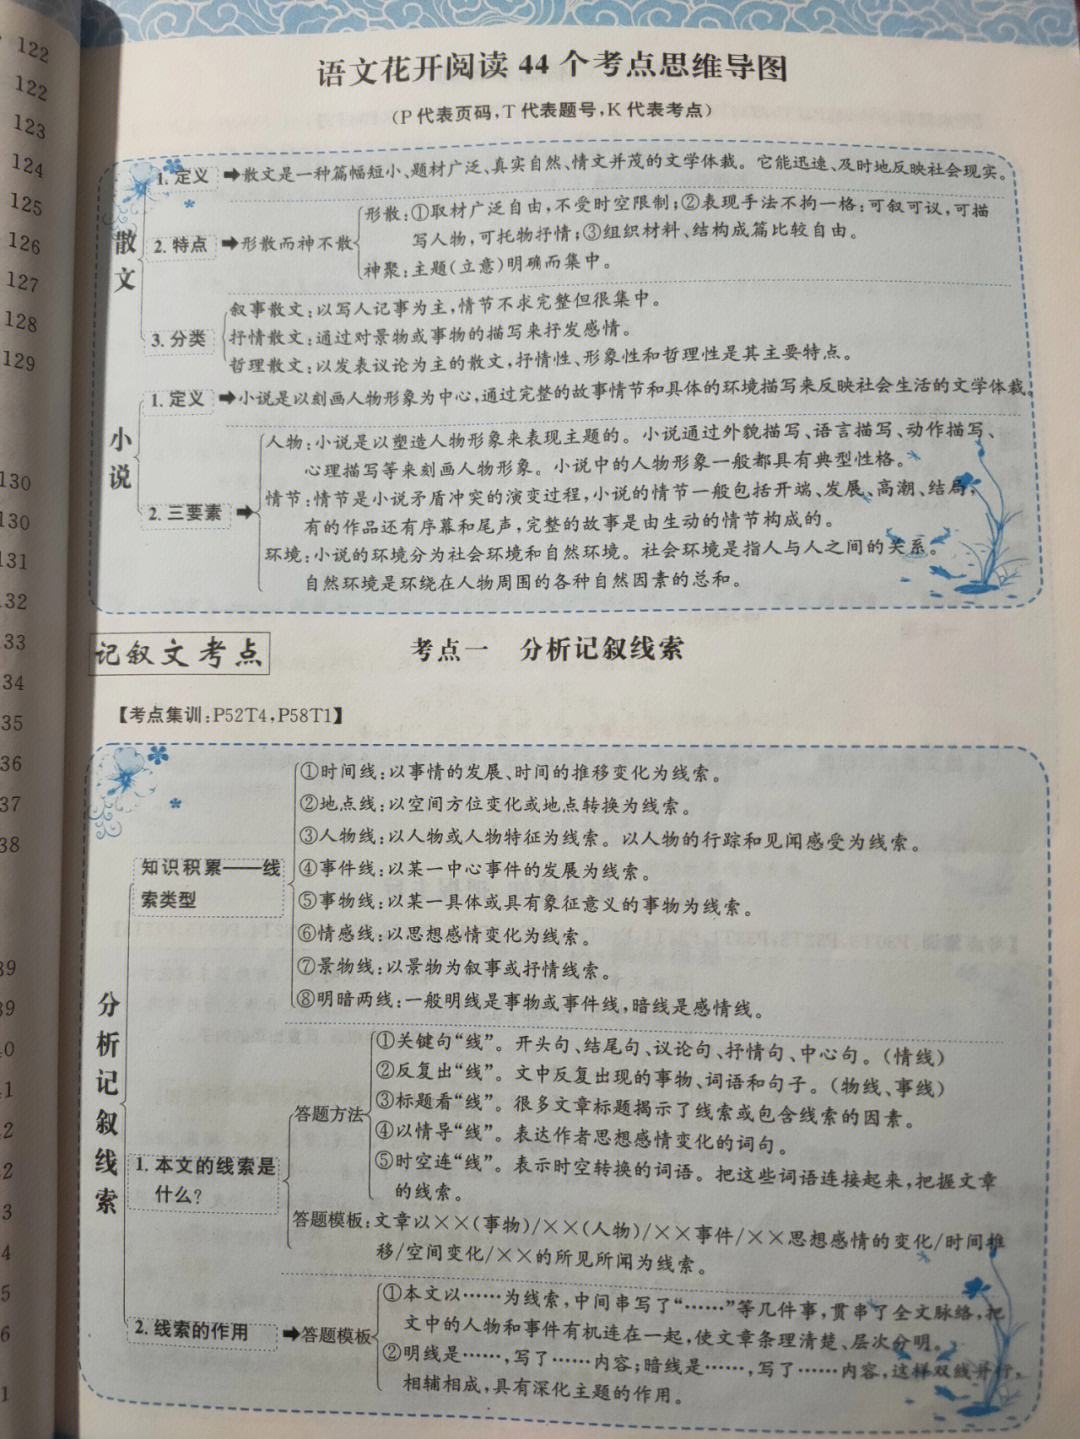 122
122
123
124
125
126
127
128
129
130
130
131
132
33
34
35
36
37
38
39
39
40
41
42
42
3
4
5
6
1
语文花开阅读 44 个考点思维导图
(P 代表页码,T 代表题号,K 代表考点)
散文
1. 定义 ➡散文是一种篇幅短小、题材广泛、真实自然、情文并茂的文学体裁。它能迅速、及时地反映社会现实。
2. 特点 ➡形散而神不散
形散:①取材广泛自由,不受时空限制;②表现手法不拘一格:可叙可议,可描
写人物,可托物抒情;③组织材料、结构成篇比较自由。
神聚:主题(立意)明确而集中。
3. 分类
叙事散文:以写人记事为主,情节不求完整但很集中。
抒情散文:通过对景物或事物的描写来抒发感情。
哲理散文:以发表议论为主的散文,抒情性、形象性和哲理性是其主要特点。
小说
1. 定义 ➡小说是以刻画人物形象为中心,通过完整的故事情节和具体的环境描写来反映社会生活的文学体裁。
2. 三要素 ➡
人物:小说是以塑造人物形象来表现主题的。小说通过外貌描写、语言描写、动作描写、
心理描写等来刻画人物形象。小说中的人物形象一般都具有典型性格。
情节:情节是小说矛盾冲突的演变过程,小说的情节一般包括开端、发展、高潮、结局,
有的作品还有序幕和尾声,完整的故事是由生动的情节构成的。
环境:小说的环境分为社会环境和自然环境。社会环境是指人与人之间的关系。
自然环境是环绕在人物周围的各种自然因素的总和。
记叙文考点
考点一 分析记叙线索
【考点集训:P52T4,P58T1】
分析记叙线索
知识积累——线
索类型
①时间线:以事情的发展、时间的推移变化为线索。
②地点线:以空间方位变化或地点转换为线索。
③人物线:以人物或人物特征为线索。以人物的行踪和见闻感受为线索。
④事件线:以某一中心事件的发展为线索。
⑤事物线:以某一具体或具有象征意义的事物为线索。
⑥情感线:以思想感情变化为线索。
⑦景物线:以景物为叙事或抒情线索。
⑧明暗两线:一般明线是事物或事件线,暗线是感情线。
1. 本文的线索是
什么?
答题方法
①关键句“线”。开头句、结尾句、议论句、抒情句、中心句。(情线)
②反复出“线”。文中反复出现的事物、词语和句子。(物线、事线)
③标题看“线”。很多文章标题揭示了线索或包含线索的因素。
④以情导“线”。表达作者思想感情变化的词句。
⑤时空连“线”。表示时空转换的词语。把这些词语连接起来,把握文章
的线索。
答题模板:文章以××(事物)/××(人物)/××事件/××思想感情的变化/时间推
移/空间变化/××的所见所闻为线索。
2. 线索的作用 ➡答题模板
①本文以……为线索,中间串写了“……”等几件事,贯串了全文脉络,把
文中的人物和事件有机连在一起,使文章条理清楚、层次分明。
②明线是……,写了……内容;暗线是……,写了……内容,这样双线并行,
相辅相成,具有深化主题的作用。